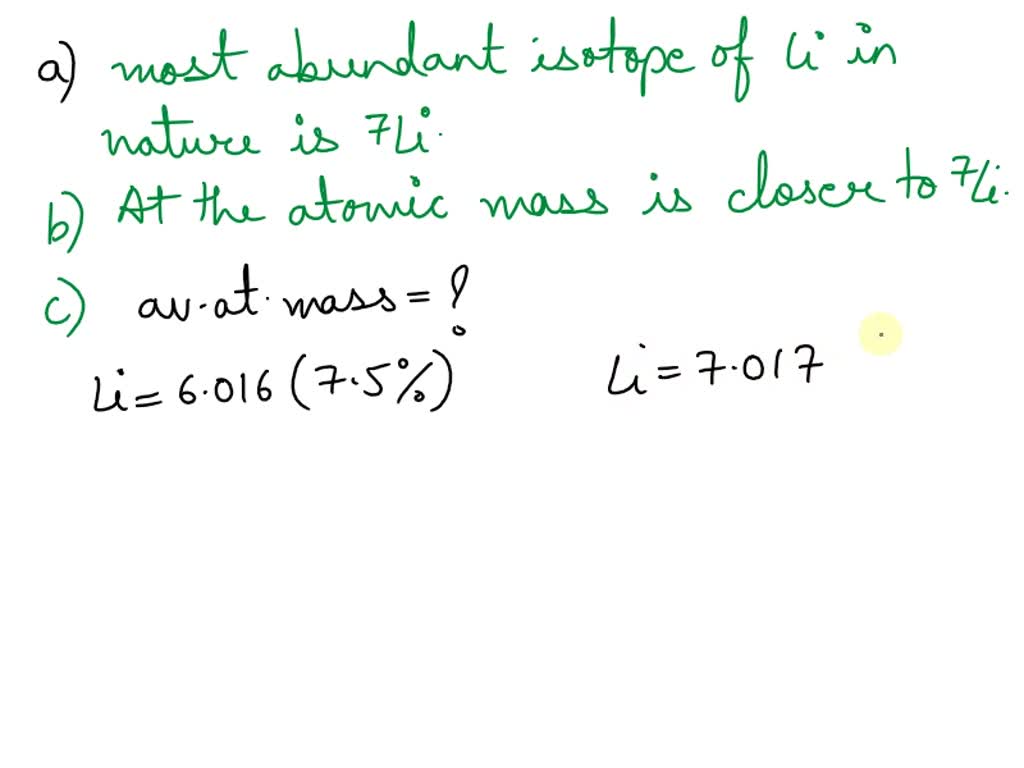 a) most abundant isotope of Li in
nature is 7Li.
b) At the atomic mass is closer to 7Li.
c) av.at.mass = ?
Li = 6.016 (7.5%) Li = 7.017